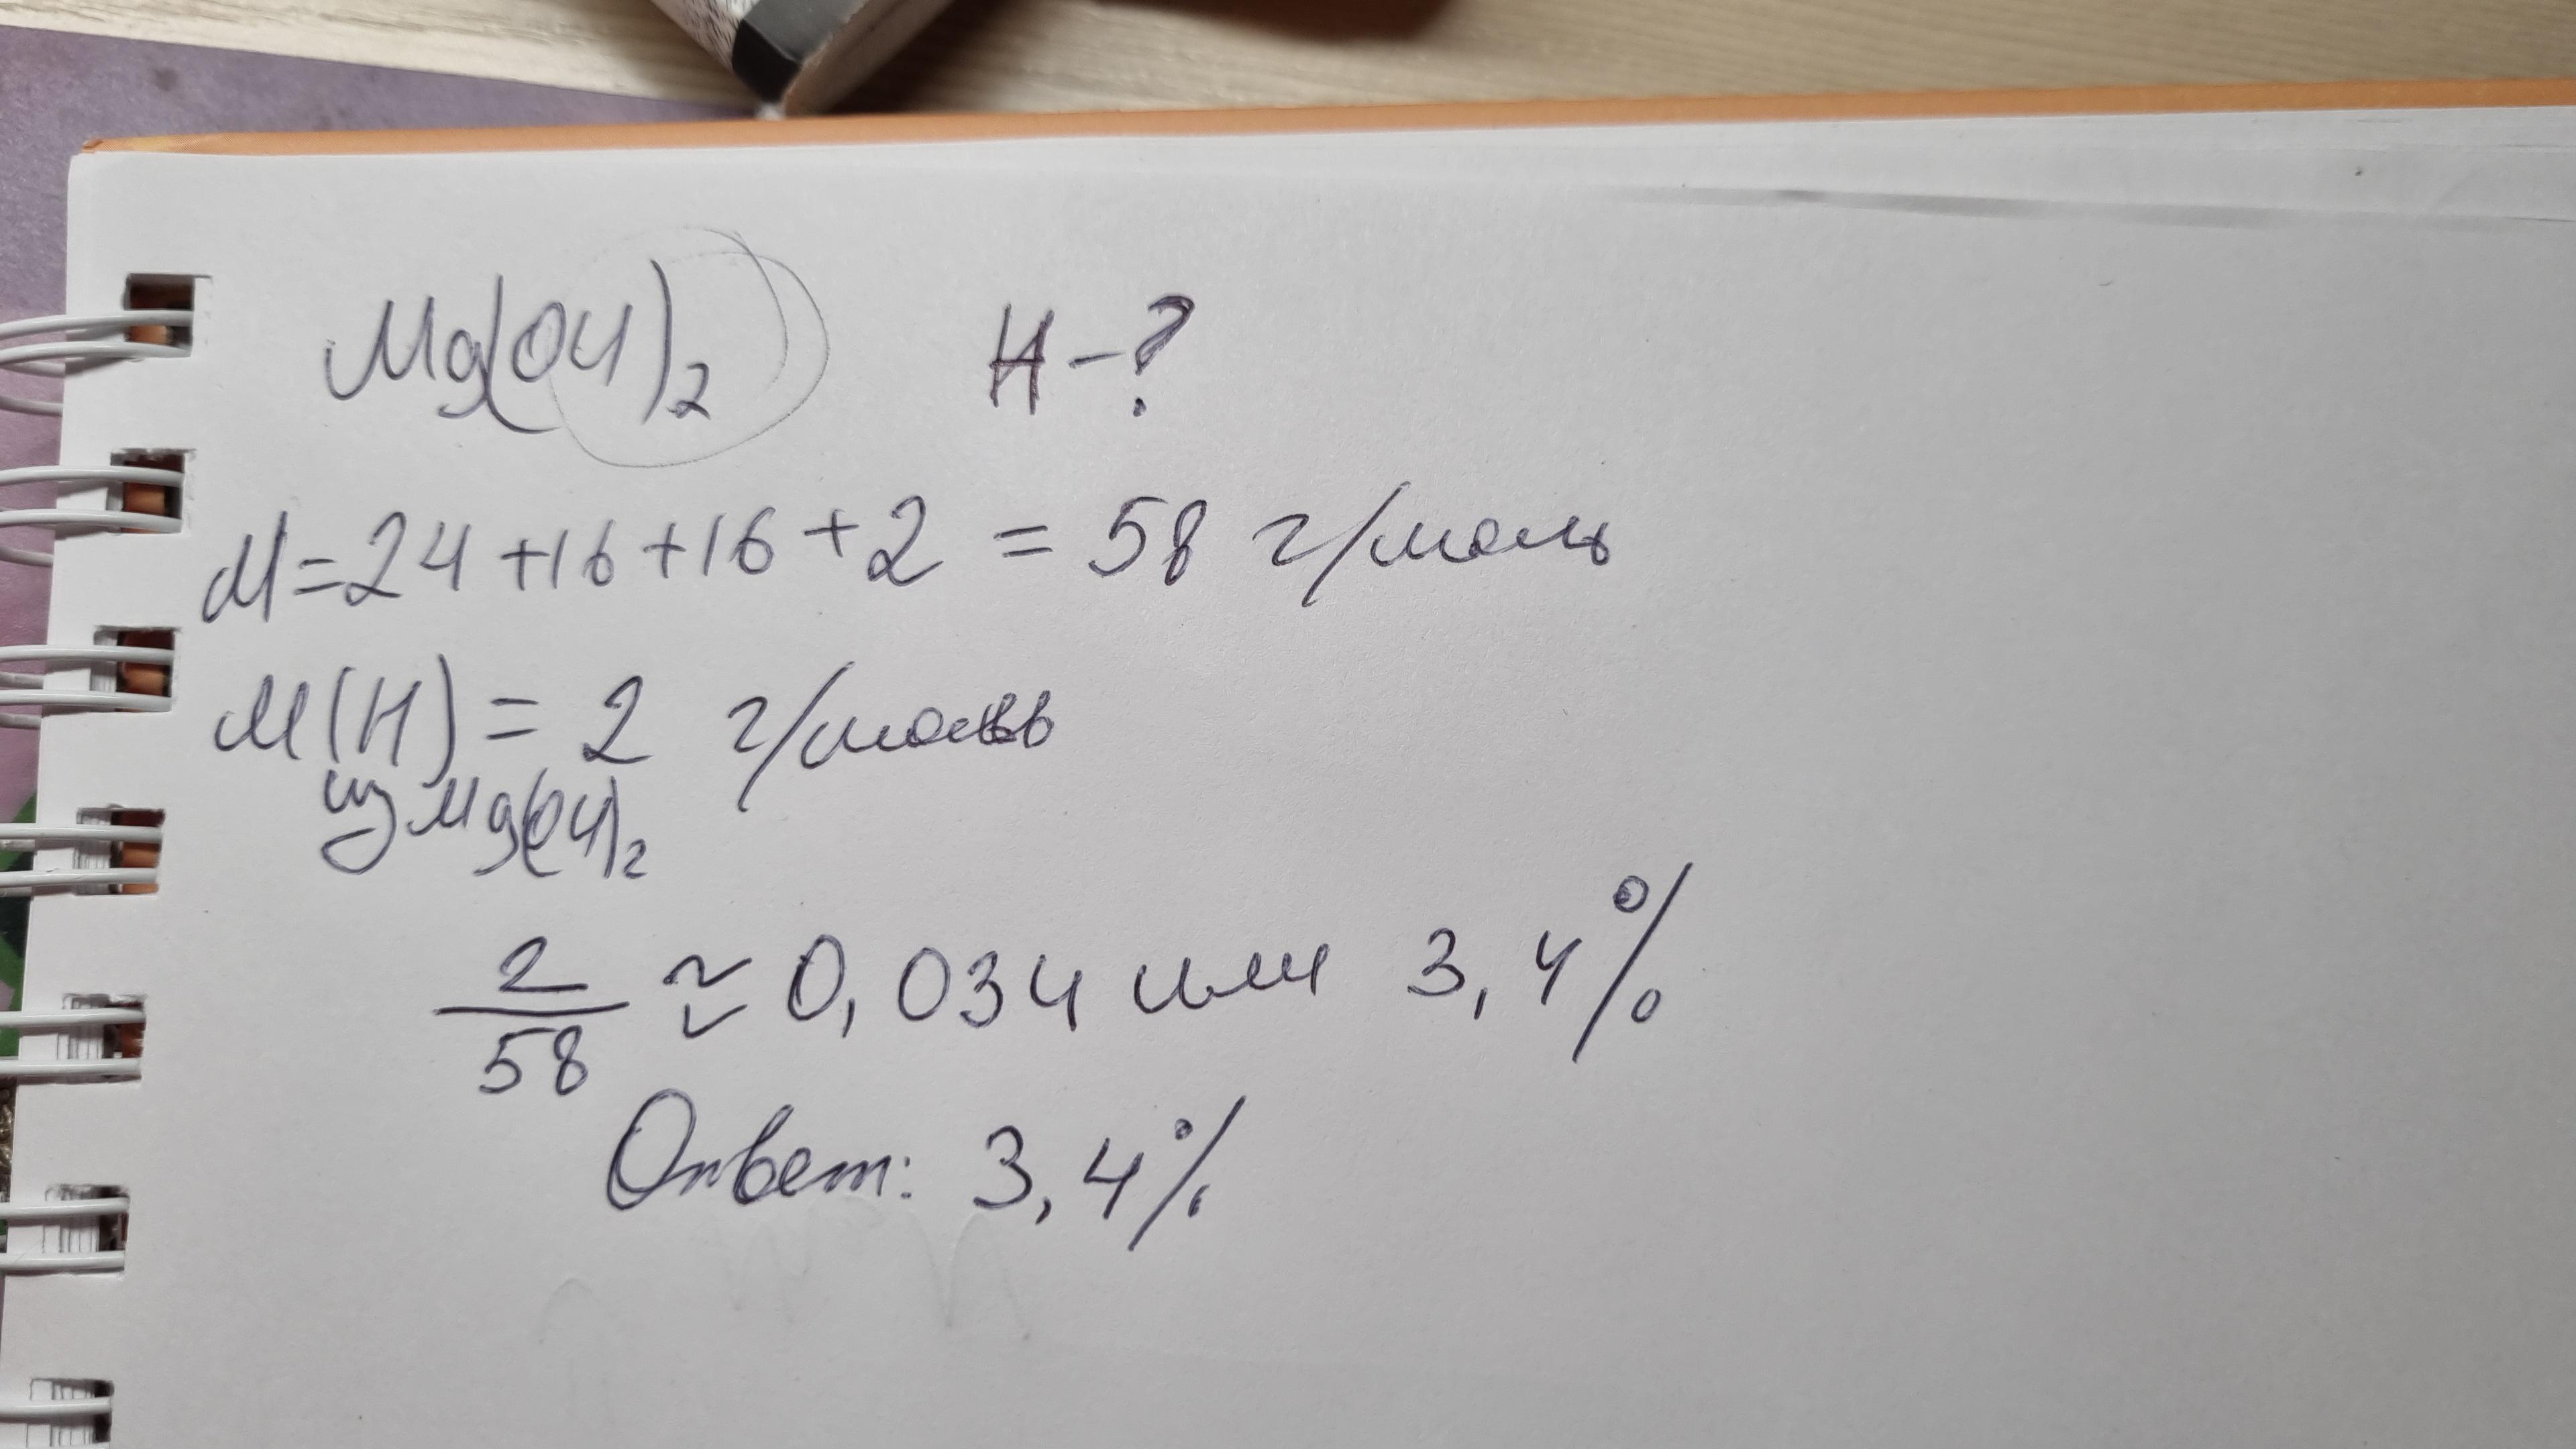 Mg(OH)₂ H-?
M=24+16+16+2 = 58 г/моль
M(H) = 2 г/моль
из Mg(OH)₂
2/58 ≈ 0,034 или 3,4%
Ответ: 3,4%